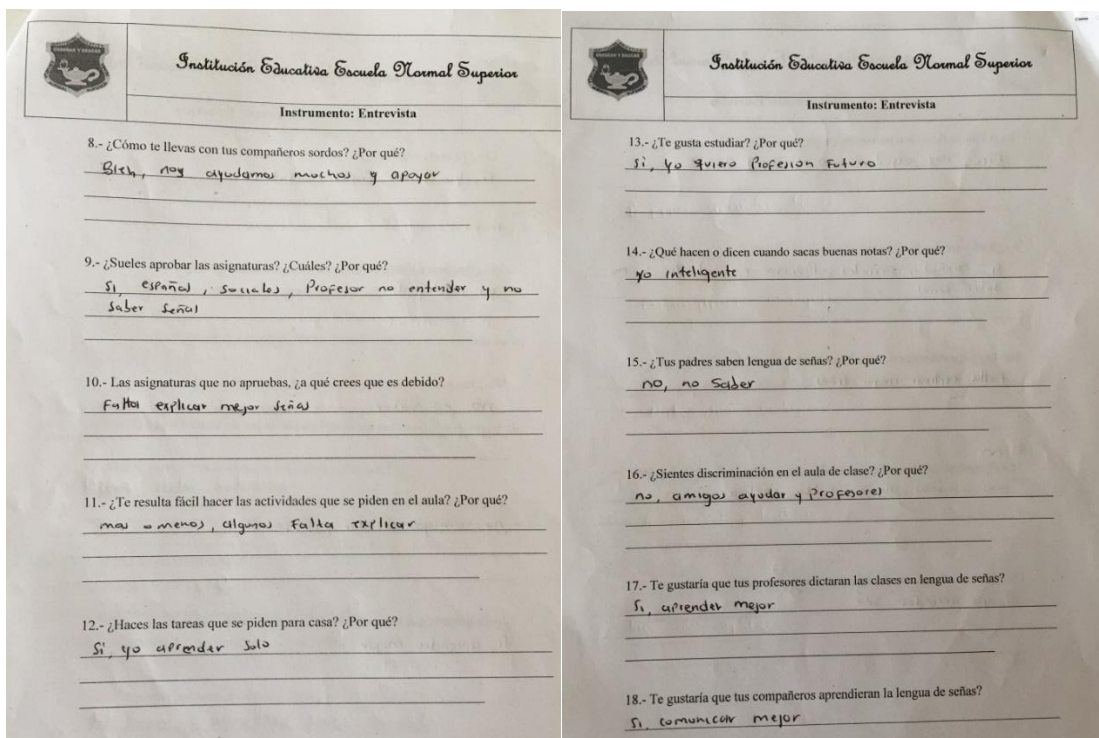 Institución Educativa Escuela Normal Superior
Instrumento: Entrevista
8.- ¿Cómo te llevas con tus compañeros sordos? ¿Por qué?
Bien, nos ayudamos muchos y apoyar
9.- ¿Sueles aprobar las asignaturas? ¿Cuáles? ¿Por qué?
Si, español, sociales, Profesor no entender y no
Saber Señal
10.- Las asignaturas que no apruebas, ¿a qué crees que es debido?
Falta explicar mejor señas
11.- ¿Te resulta fácil hacer las actividades que se piden en el aula? ¿Por qué?
mas o menos, algunos Falta explicar
12.- ¿Haces las tareas que se piden para casa? ¿Por qué?
Si, yo aprender solo
Institución Educativa Escuela Normal Superior
Instrumento: Entrevista
13.- ¿Te gusta estudiar? ¿Por qué?
Si, yo quiero Profesion Futuro
14.- ¿Qué hacen o dicen cuando sacas buenas notas? ¿Por qué?
yo inteligente
15.- ¿Tus padres saben lengua de señas? ¿Por qué?
no, no Saber
16.- ¿Sientes discriminación en el aula de clase? ¿Por qué?
no, amigos ayudar y Profesores
17.- Te gustaría que tus profesores dictaran las clases en lengua de señas?
Si, aprender mejor
18.- Te gustaría que tus compañeros aprendieran la lengua de señas?
Si, comunicar mejor